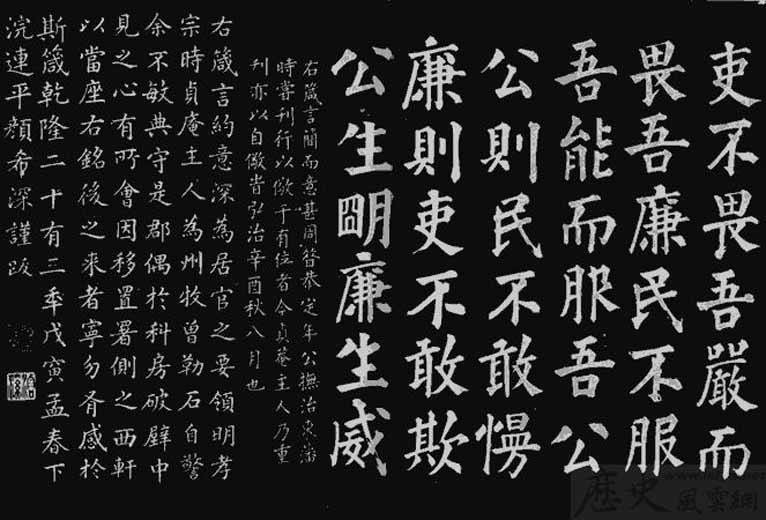 吏不畏吾嚴而
畏吾廉民不服
吾能而服吾公
公則民不敢慢
廉則吏不敢欺
公生明廉生威
右箴言簡而意甚周昔恭定年公撫治東藩
時嘗刊行以儆于有位者今貞菴主人乃重
刊亦以自儆皆弘治辛酉秋八月也
右箴言約意深為居官之要領明孝
宗時貞庵主人為州牧曾勒石自警
余不敏典守是郡偶於科房破壁中
見之心有所會因移置署側之西軒
以當座右銘後之來者寧勿有感於
斯箴乾隆二十有三年戊寅孟春下
浣連平顏希深謹跋
歷史風雲網